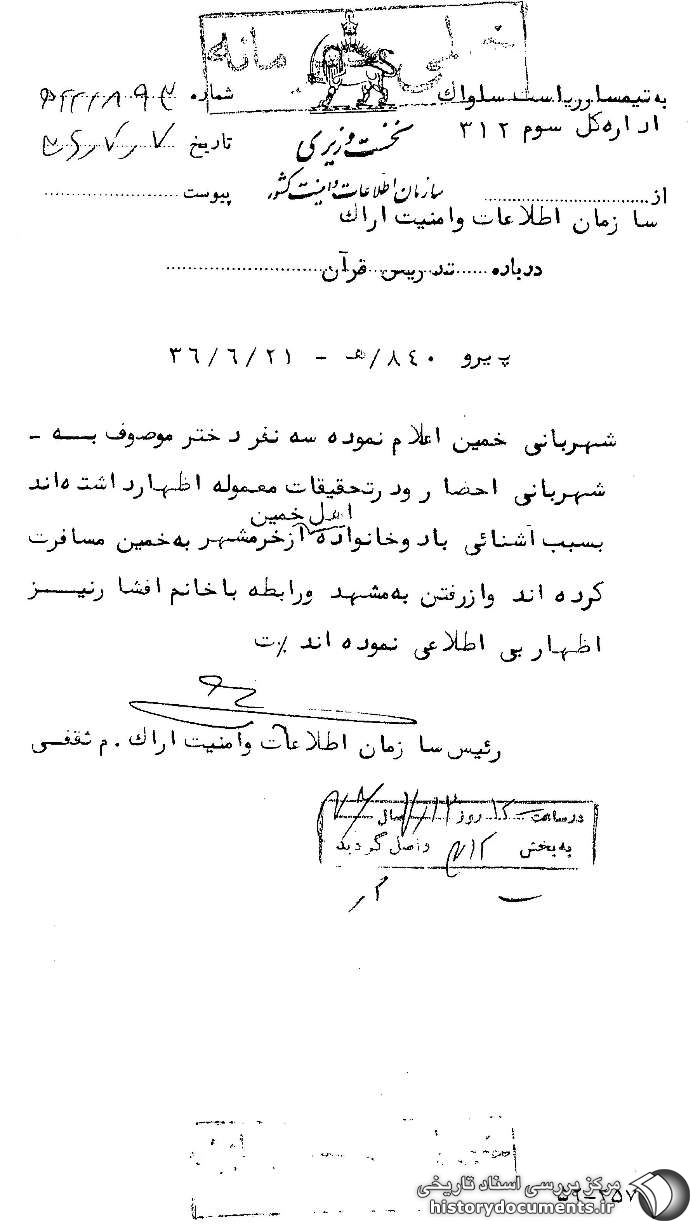 خیلی محرمانه
به تیمسار ریاست ساواک
اداره کل سوم ۳۱۲
شماره
نخست وزیری
تاریخ ۳۶/۷/۷
سازمان اطلاعات و امنیت کشور
از
پیوست
سازمان اطلاعات و امنیت اراک
درباره تدریس قرآن
پیرو ۸۴۰/ه‍ - ۳۶/۶/۲۱
شهربانی خمین اعلام نموده سه نفر دختر موصوف به -
شهربانی احضار و در تحقیقات معموله اظهار داشته اند
بسبب آشنائی با دو خانواده اهل خمین از خرمشهر به خمین مسافرت
کرده اند و از رفتن به مشهد و رابطه با خانم افشار نیز
اظهار بی اطلاعی نموده اند ٪ت
رئیس سازمان اطلاعات و امنیت اراک . م ثقفی
در ساعت روز سال
به بخش ۳۱۲ واصل گردید
مرکز بررسی اسناد تاریخی
historydocuments.ir